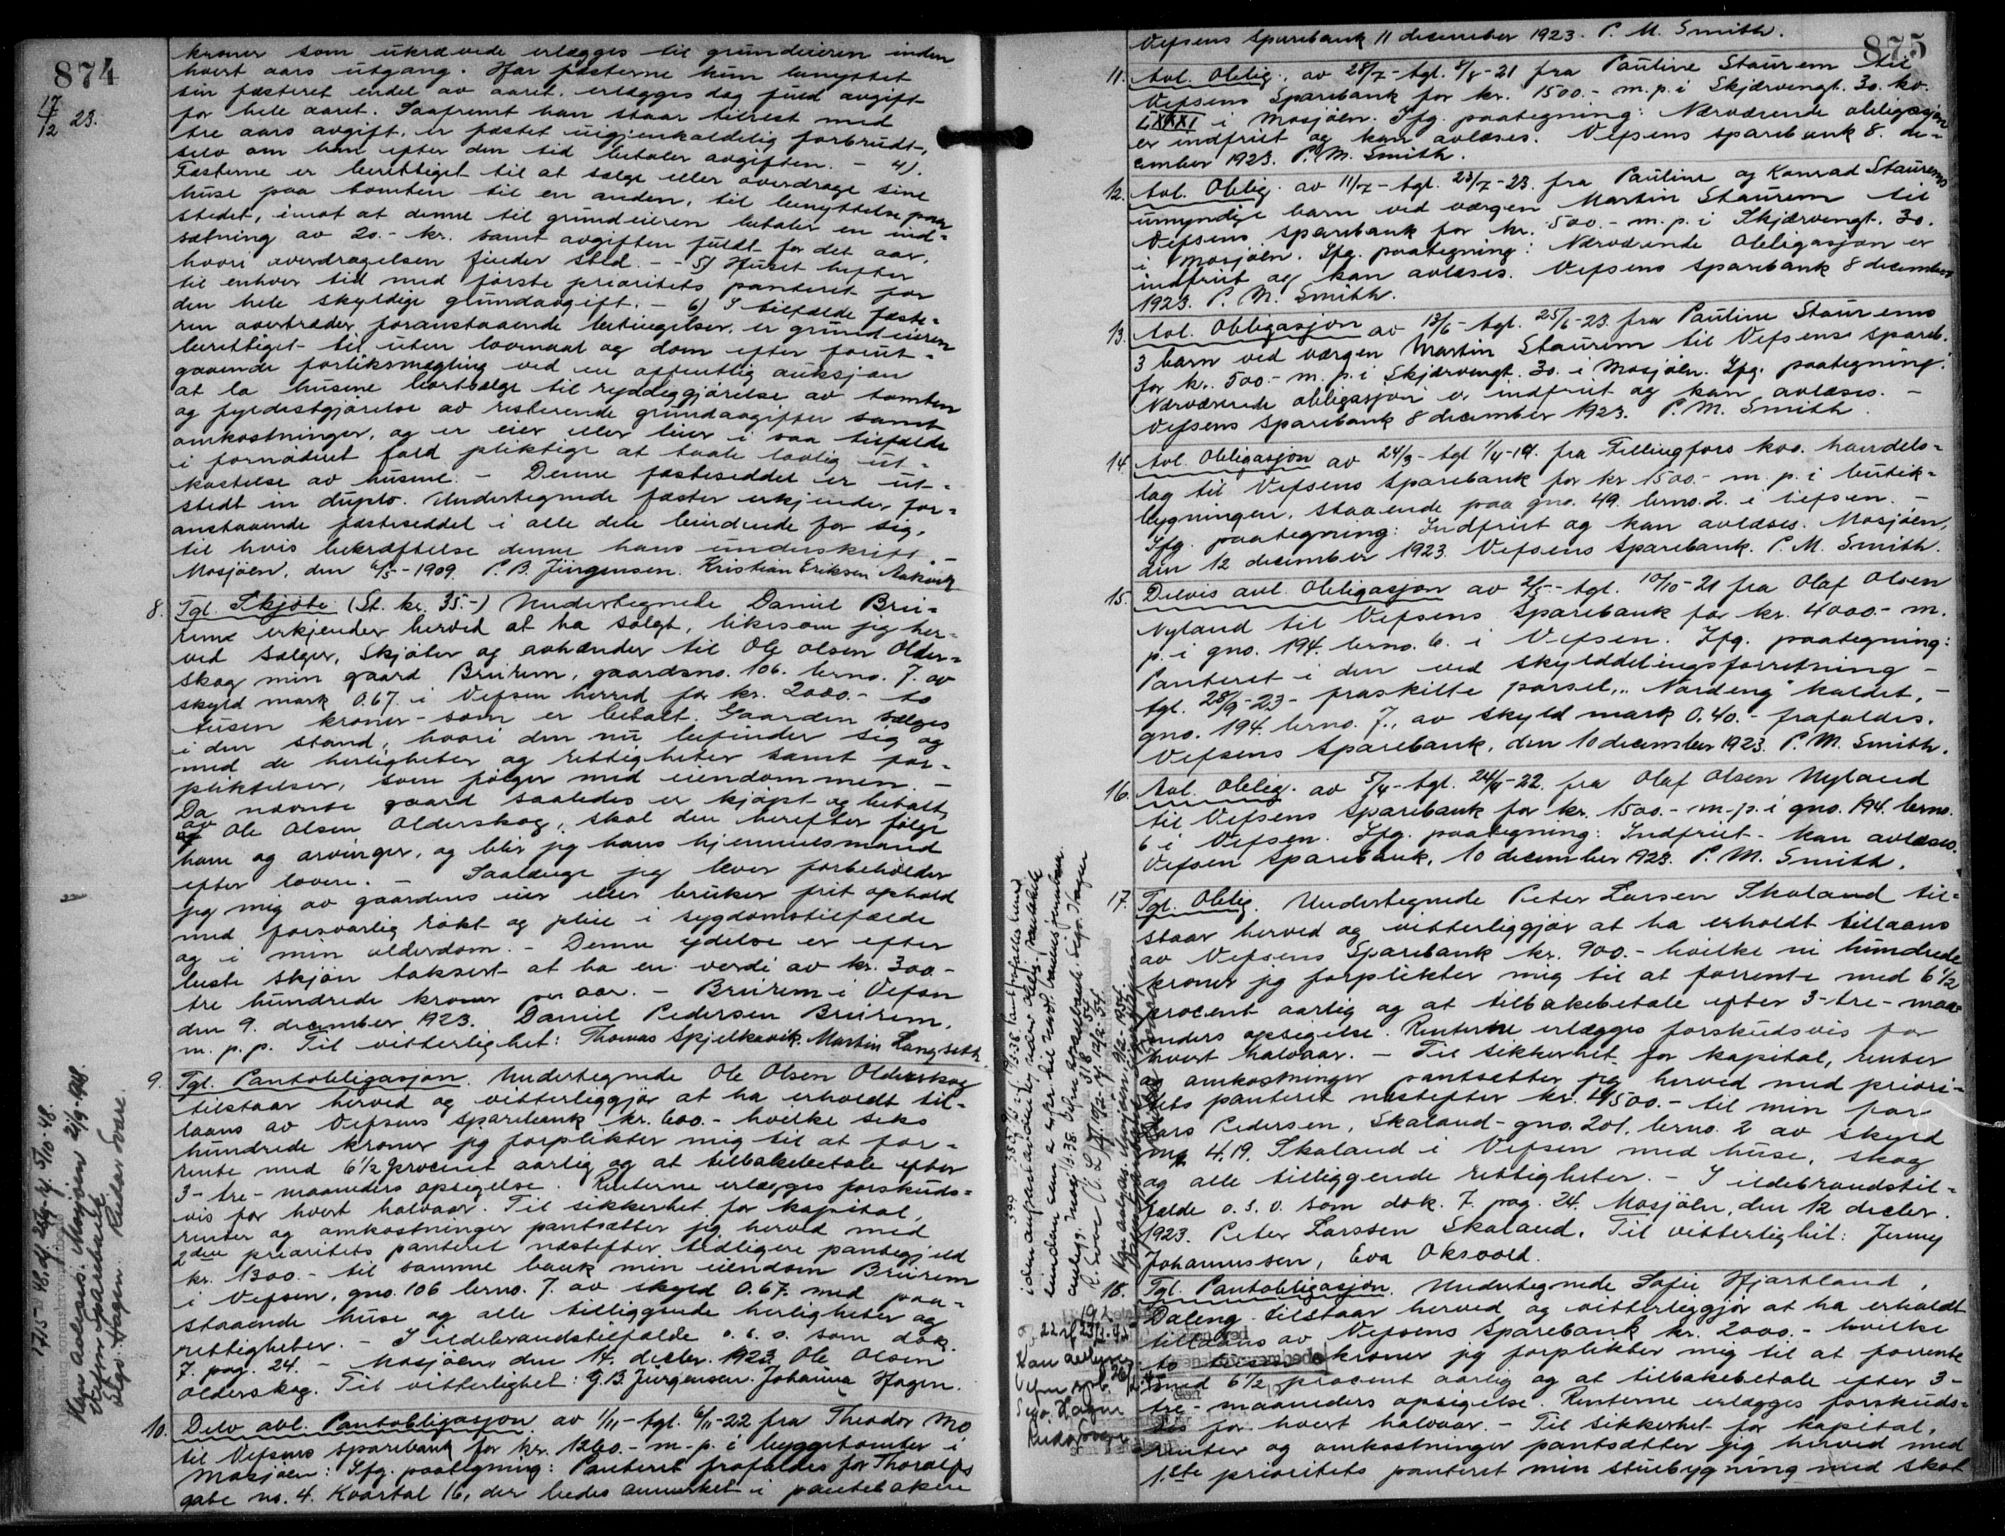 874
17/12 23.
kroner som ukrævede erlægges til grundeieren inden
hvert aars utgang. Har fæsterne kun benyttet
sin fæsteret endel av aaret, erlægges dog fuld avgift
for hele aaret. Saafremt han staar tilrest med
tre aars avgift, er fæstet uigjenkaldelig forbrudt,
selv om han efter den tid betaler avgiften. - 4).
Fæsterne er berettiget til at sælge eller overdrage sine
huse paa tomten til en anden, til benyttelse paa
stedet, imot at denne til grundeieren betaler en ind-
sætning av 20.- kr. samt avgiften fuldt for det aar,
hvori overdragelsen finder sted. - - 5) Huset hefter
til enhver tid med første prioritets panteret for
den hele skyldige grundavgift. - 6) I tilfælde fæste-
ren overtræder foranstaaende betingelser, er grundeieren
berettiget til uten lovmaal og dom efter forut-
gaaende forliksmægling ved en offentlig auksjon
at la husene bortsælge til ryddeggjørelse av tomten
og fyldestgjørelse av resterende grundavgifter samt
omkostninger, og er eier eller leier i saa tilfælde
i fornødent fald pliktige at taale lovlig ut-
kastelse av husene. - Denne fæsteseddel er ut-
stedt in duplo. Undertegnede fæster erkjender for-
anstaaende fæsteseddel i alle dele bindende for sig,
til hvis bekræftelse denne hans underskrift -
Mosjøen, den 6/5-1909. P. B. Jürgensen. Kristian Eriksen Aakvik
8. Tgl. Skjøte (St. kr. 35.-) Undertegnede Daniel Brü-
rem erkjender herved at ha solgt, likesom jeg her-
ved sælger, skjøter og avhænder til Ole Olsen Older-
skog min gaard Brürem, gaardsno. 106. brno. 7. av
skyld mark 0.67. i Vefsen herred for kr. 2000.- to
tusen kroner - som er betalt. Gaarden sælges
i den stand, hvori den nu befinder sig og
med de herligheter og rettigheter samt for-
pliktelser, som følger med eiendommen. -
Da nævnte gaard saaledes er kjøpt og betalt
av Ole Olsen Olderskog, skal den herefter følge
ham og arvinger, og blir jeg hans hjemmelsmand
efter loven. - Saalænge jeg lever forbeholder
jeg mig av gaardens eier eller bruker frit ophold
med forsvarlig røkt og pleie i sygdomstilfælde
og i min alderdom. - Denne ydelse er efter
beste skjøn taksert at ha en verdi av kr. 300.-
tre hundrede kroner per aar. - Brürem i Vefsn
den 9. december 1923. Daniel Pedersen Brürem,
m. p. p. Til vitterlighet: Thomas Spjelkavik. Martin Langseth
9. Tgl. Pantobligasjon. Undertegnede Ole Olsen Olderskog
tilstaar herved og vitterleggjør at ha erholdt til-
laans av Vefsens sparebank kr. 600.- hvilke seks
hundrede kroner jeg forplikter mig til at for-
rente med 6 1/2 procent aarlig og at tilbakebetale efter
3- tre- maaneders opsigelse. Renterne erlægges forskuds-
vis for hvert halvaar. Til sikkerhet for kapital,
renter og omkostninger pantsætter jeg herved med
2den prioritets panteret næstefter tidligere pantegjeld
kr. 1300.- til samme bank min eiendom Brürem
i Vefsen, gno. 106 brno. 7. av skyld 0.67. med paa-
staaende huse og alle tilliggende herligheter og
rettigheter. - I ildebrandstilfælde o. s. v. som dok.
7. pag. 24. - Mosjøen, den 14. decbr. 1923. Ole Olsen
Olderskog. Til vitterlighet: G. B. Jürgensen. Johanna Hagen.
10. Delv. avl. Pantobligasjon av 1/11- tgl. 6/11-22 fra Theodor Mo
til Vefsens sparebank for kr. 1260.- m-p. i byggetomter i
Mosjøen: Ifg. paategning: Panteret frafaldes for Thoralfs
gate no. 4. Kvartal 16, der bedes anmerket i pantebøkene
1715 - 48. d. 5/10-48.
Kan avlesas. Mosjøen 21/9 1948.
Vefsn Sparebank
Sigv. Hagen. Reidar Svare.
875
Vefsens Sparebank 11 december 1923. P. M. Smith.
11. Avl. Oblig. av 28/7- tgl. 8/8-21 fra Pauline Staurem til
Vefsens Sparebank for kr. 1500.- m. p. i Skjærvengt. 30. kv.
LXXXI i Mosjøen. Ifg. paategning: Nærværende obligasjon
er indfriet og kan avlæses. Vefsens sparebank 8. de-
cember 1923. P. M. Smith.
12. Avl. Oblig. av 11/7- tgl. 23/7-23. fra Pauline og Konrad Staurems
umyndige barn ved værgen Martin Staurem til
Vefsens sparebank for kr. 500.- m. p. i Skjærvengt. 30.
i Mosjøen. Ifg. paategning: Nærværende Obligasjon er
indfriet og kan avlæses. Vefsens sparebank 8 december
1923. P. M. Smith.
13. Avl. Obligasjon av 13/6- tgl. 25/6-23. fra Pauline Staurems
3 barn ved værgen Martin Staurem til Vefsens spareb.
for kr. 500.- m. p. i Skjærvengt. 30. i Mosjøen. Ifg. paategning:
Nærværende obligasjon er indfriet og kan avlæses. -
Vefsens Sparebank 8 december 1923. P. M. Smith.
14. Avl. Obligasjon av 24/3- tgl 1/4-19. fra Fellingfors koo. handels-
lag til Vefsens Sparebank for kr 1500.- m. p. i butik-
bygningen, staaende paa gno. 49. brno. 2. i Vefsen. -
Ifg. paategning: Indfriet og kan avlæses. Mosjøen,
den 12 december 1923. Vefsens Sparebank. P. M. Smith.
15. Delvis avl. Obligasjon av 2/5- tgl. 10/10-21 fra Olaf Olsen
Nyland til Vefsens Sparebank for kr. 4000.- m.
p. i gno. 194. brno. 6. i Vefsen. Ifg. paategning:
Panteret i den ved skylddelingsforretning -
tgl. 28/9-23- fraskilte parsel, "Nordeng" kaldet, -
gno. 194. brno. 7., av skyld mark 0.40.- frafaldes.
Vefsens Sparebank, den 10 december 1923. P. M. Smith.
16. Avl. Oblig. av 5/4- tgl. 24/4-22. fra Olaf Olsen Nyland
til Vefsens Sparebank for kr. 1500.- m-p. i gno. 194. brno.
6 i Vefsen. Ifg. paategning: Indfriet - kan avlæses.
Vefsen Sparebank, 10 december 1923. P. M. Smith.
17. Tgl. Oblig. Undertegnede Peter Larsen Skaland til-
staar herved og vitterliggjør at ha erholdt tillaans
av Vefsens Sparebank kr. 900.- hvilke ni hundrede
kroner jeg forplikter mig til at forrente med 6 1/2
procent aarlig og at tilbakebetale efter 3- tre- maa-
neders opsigelse. Renterne erlægges forskudsvis for
hvert halvaar. - Til sikkerhet for kapital, renter
og omkostninger pantsetter jeg herved med priori-
tets panteret næstefter kr. 4500.- til min far
Lars Pedersen, Skaland - gno. 201. brno. 2 av skyld
mk 4.19. Skaland i Vefsen med huse, skog
og alle tilliggende rettigheter. - I ildebrandstil-
fælde o. s. v. som dok. 7. pag. 24. Mosjøen, den 12 decbr.
1923. Peter Larssen Skaland. Til vitterlighet: Jenny
Johannessen, Eva Oksvold.
18. Tgl. Pantobligasjon. Undertegnede Sofie Hjartland,
Daleng tilstaar herved og vitterleggjør at ha erholdt
tillaans av Vefsens Sparebank kr. 2000.- hvilke
to tusen kroner jeg forplikter mig til at forrente
med 6 1/2 procent aarlig og at tilbakebetale efter 3-
tre- maaneders opsigelse. Renterne erlægges forskuds-
vis for hvert halvaar. - Til sikkerhet for kapital,
renter og omkostninger pantsætter jeg herved med
1.ste prioritets panteret min stuebygning med skot
Kan avlyses
Sigv. Hagen